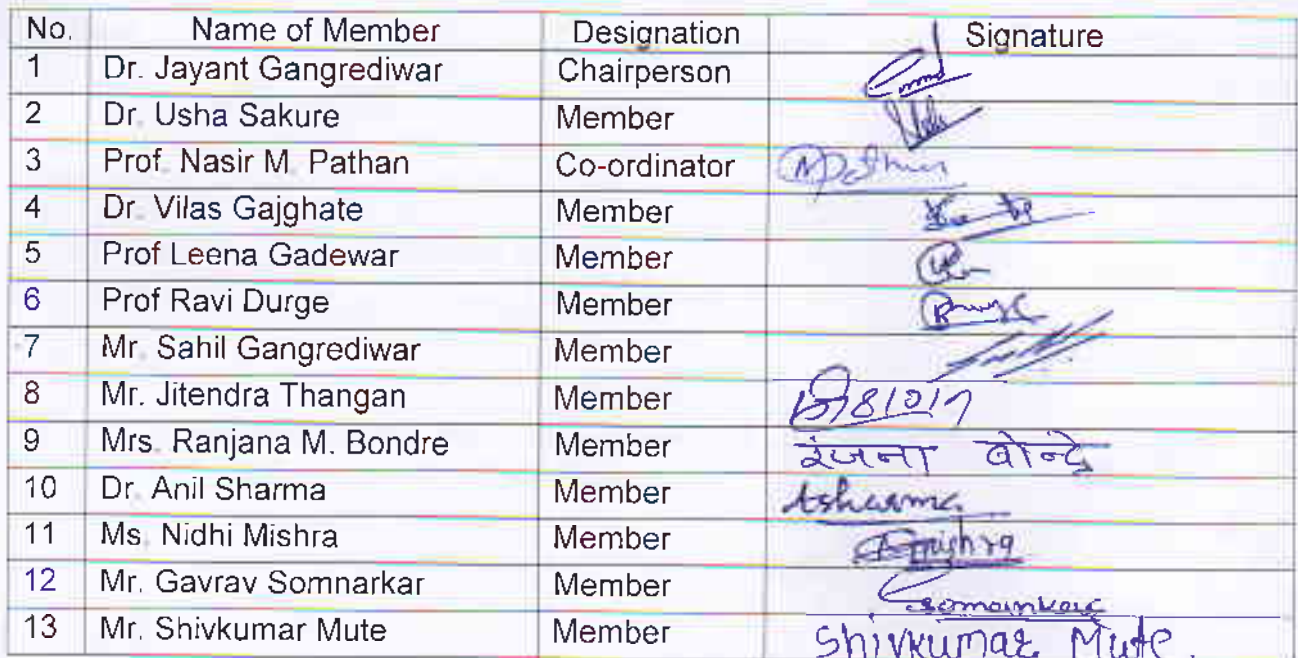 No. Name of Member Designation Signature
1 Dr. Jayant Gangrediwar Chairperson
2 Dr. Usha Sakure Member
3 Prof. Nasir M. Pathan Co-ordinator
4 Dr. Vilas Gajghate Member
5 Prof Leena Gadewar Member
6 Prof Ravi Durge Member
7 Mr. Sahil Gangrediwar Member
8 Mr. Jitendra Thangan Member
9 Mrs. Ranjana M. Bondre Member रंजना बोन्द्रे
10 Dr. Anil Sharma Member Asharma
11 Ms. Nidhi Mishra Member
12 Mr. Gavrav Somnarkar Member
13 Mr. Shivkumar Mute Member Shivkumar Mute.